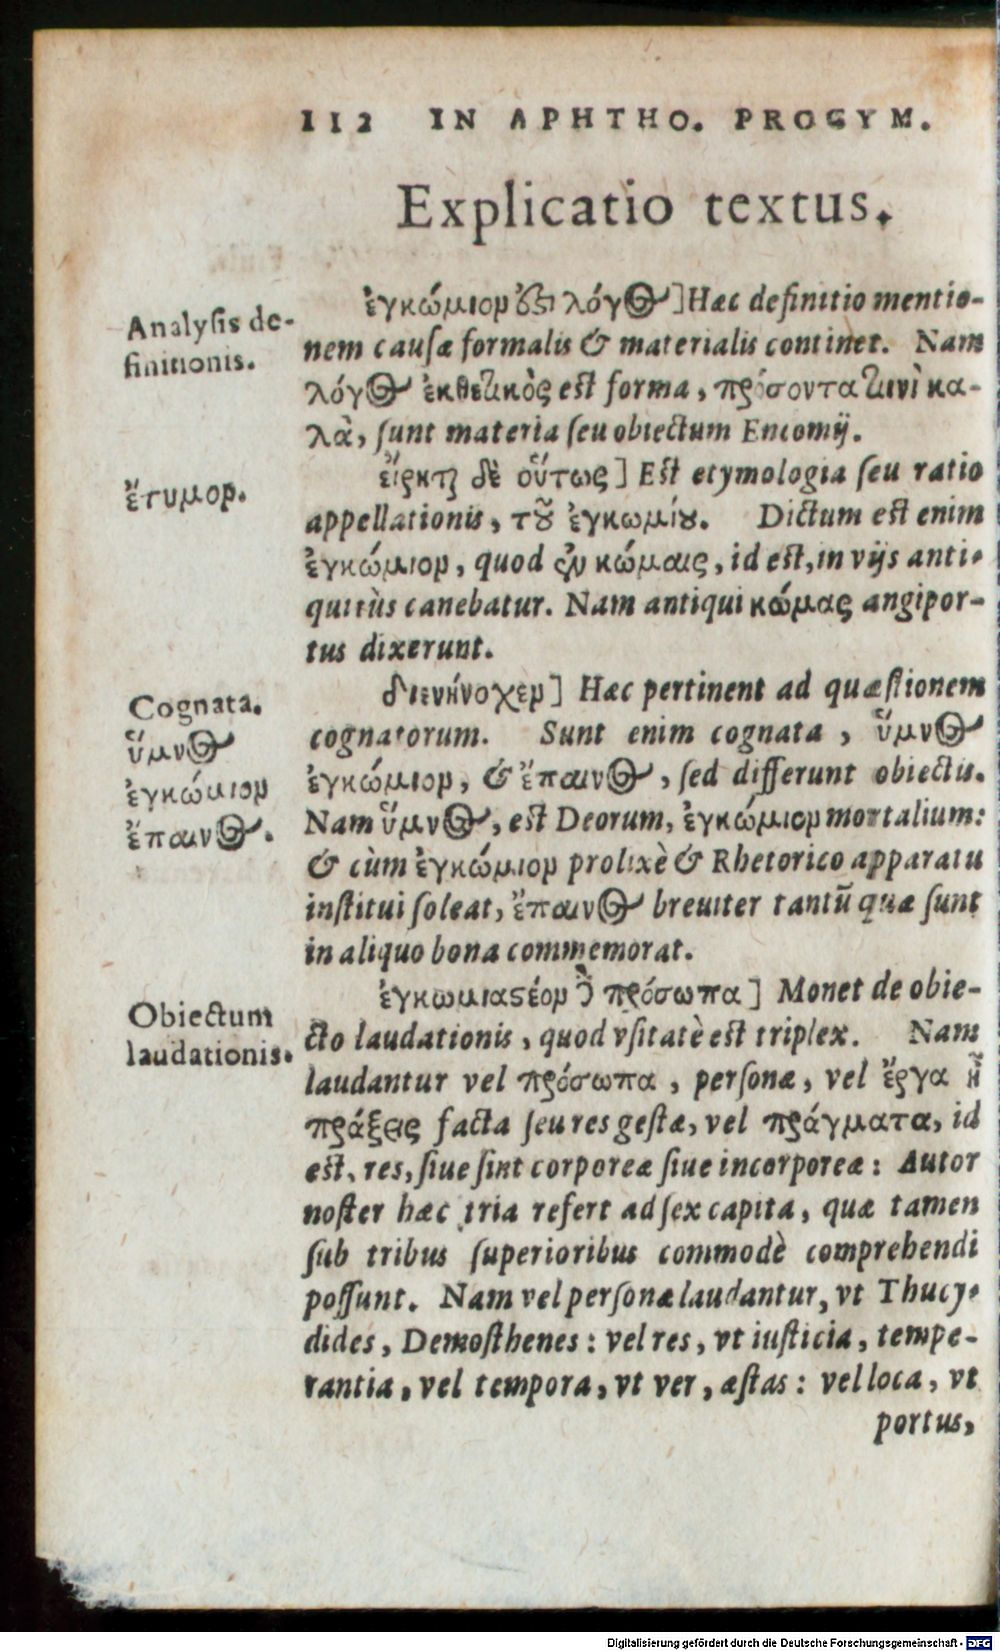 112 IN APHTHO. PROGYM.
Explicatio textus.
Analysis de-
finitionis.
ἐγκώμιον ἐστὶ λόγος]Hæc definitio mentio-
nem causæ formalis & materialis continet. Nam
λόγος ἐκθετικὸς est forma, πρόσοντα τινὶ κα-
λὰ, sunt materia seu obiectum Encomij.
ἔτυμον.
εἴρηται δὲ οὕτως] Est etymologia seu ratio
appellationis, τοῦ ἐγκωμίου. Dictum est enim
ἐγκώμιον, quod ἐν κώμαις, id est, in vijs anti-
quitùs canebatur. Nam antiqui κώμας angipor-
tus dixerunt.
Cognata.
ὕμνος
ἐγκώμιον
ἔπαινος.
διενήνοχεν] Hæc pertinent ad quæstionem
cognatorum. Sunt enim cognata, ὕμνος
ἐγκώμιον, & ἔπαινος, sed differunt obiectis.
Nam ὕμνος, est Deorum, ἐγκώμιον mortalium:
& cùm ἐγκώμιον prolixè & Rhetorico apparatu
institui soleat, ἔπαινος breuiter tantũ quæ sunt
in aliquo bona commemorat.
Obiectum
laudationis.
ἐγκωμιαστέον δὲ πρόσωπα] Monet de obie-
cto laudationis, quod vsitatè est triplex. Nam
laudantur vel πρόσωπα, personæ, vel ἔργα ἢ
πράξεις facta seu res gestæ, vel πράγματα, id
est, res, siue sint corporeæ siue incorporeæ: Autor
noster hæc tria refert ad sex capita, quæ tamen
sub tribus superioribus commodè comprehendi
possunt. Nam vel personæ laudantur, vt Thucy-
dides, Demosthenes: vel res, vt iusticia, tempe-
rantia, vel tempora, vt ver, æstas: vel loca, vt
portus,
Digitalisierung gefördert durch die Deutsche Forschungsgemeinschaft - DFG